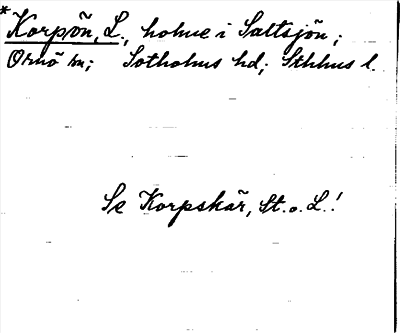 * Korpön, L., holme i Saltsjön;
Ornö sn; Sotholms hd; Sthlms l.
Se Korpskär, St. o. L.!